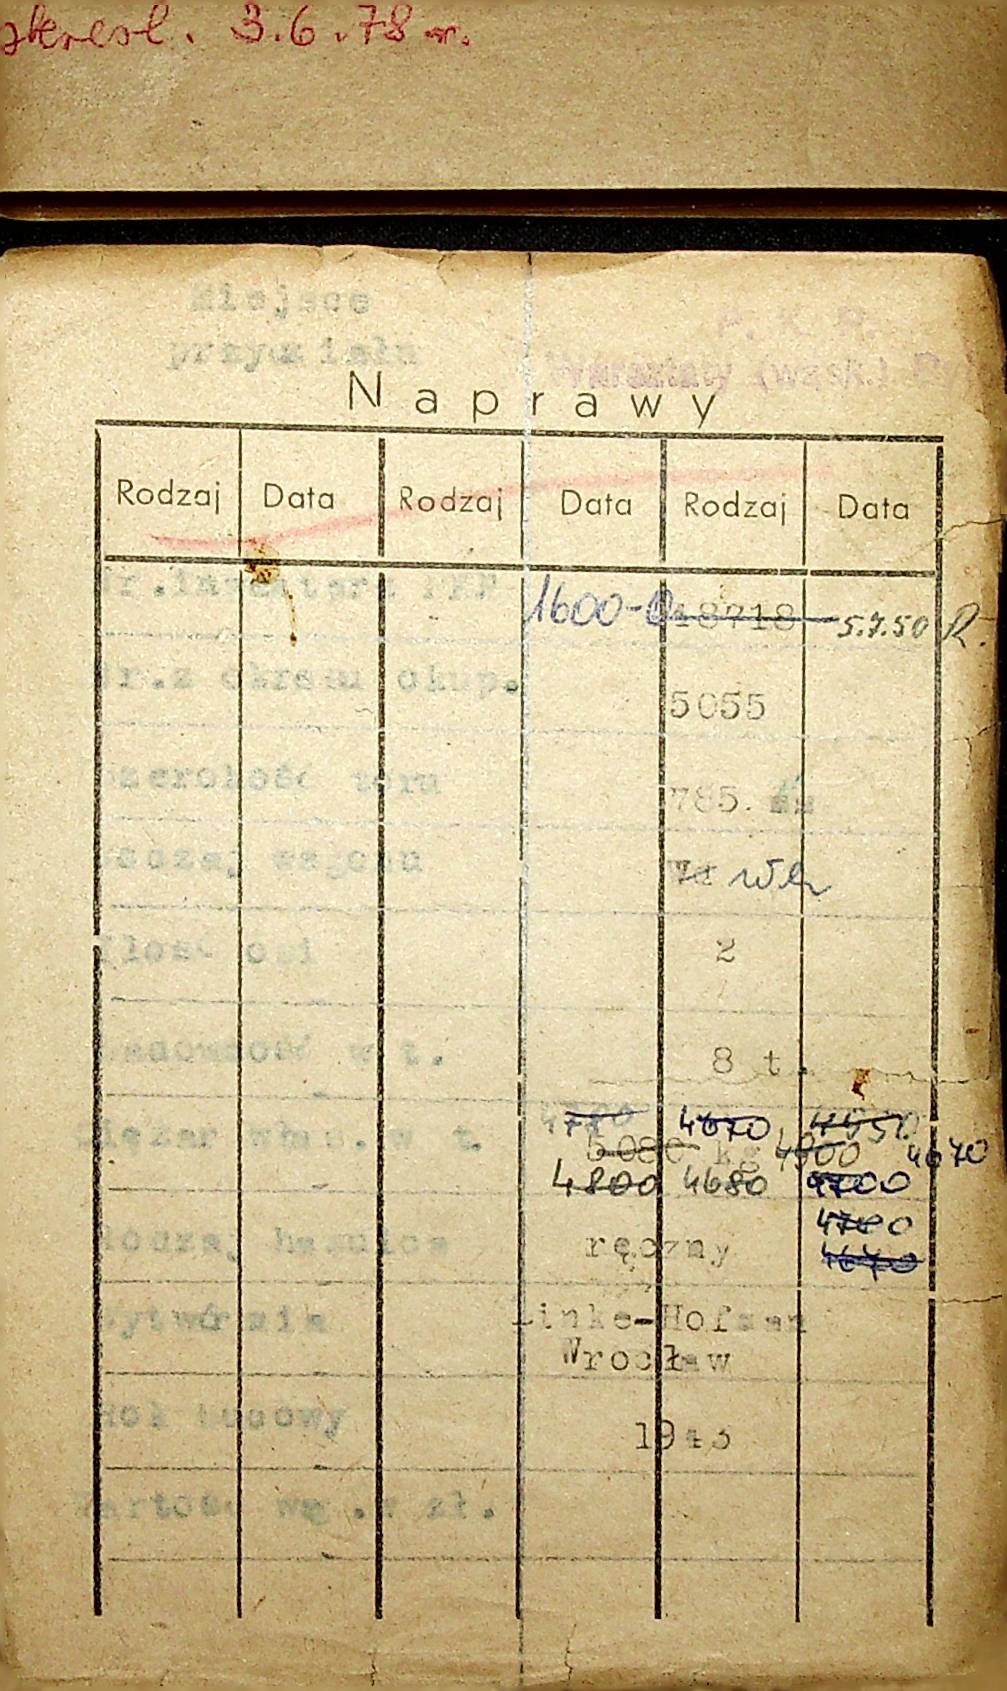 skreśl. 3.6.78 r.
Miejsce
przydziału
P. K. P.
Warsztaty (wąsk.)
Naprawy
Rodzaj Data Rodzaj Data Rodzaj Data
Nr.inwentarz PKP 1600-0 18718 5.7.50 R.
Nr.z okresu okup. 5055
Szerokość toru 785.
Rodzaj wagonu
Ilość osi 2
Ładowność w t. 8 t.
4670
Ciężar włas. w t. 5080 kg 4900 4670
4800 4680 4700
4700
Rodzaj hamulca ręczny
4670
Wytwórnia Linke-Hofman
Wrocław
Rok budowy 1943
Wartość wag.w zł.